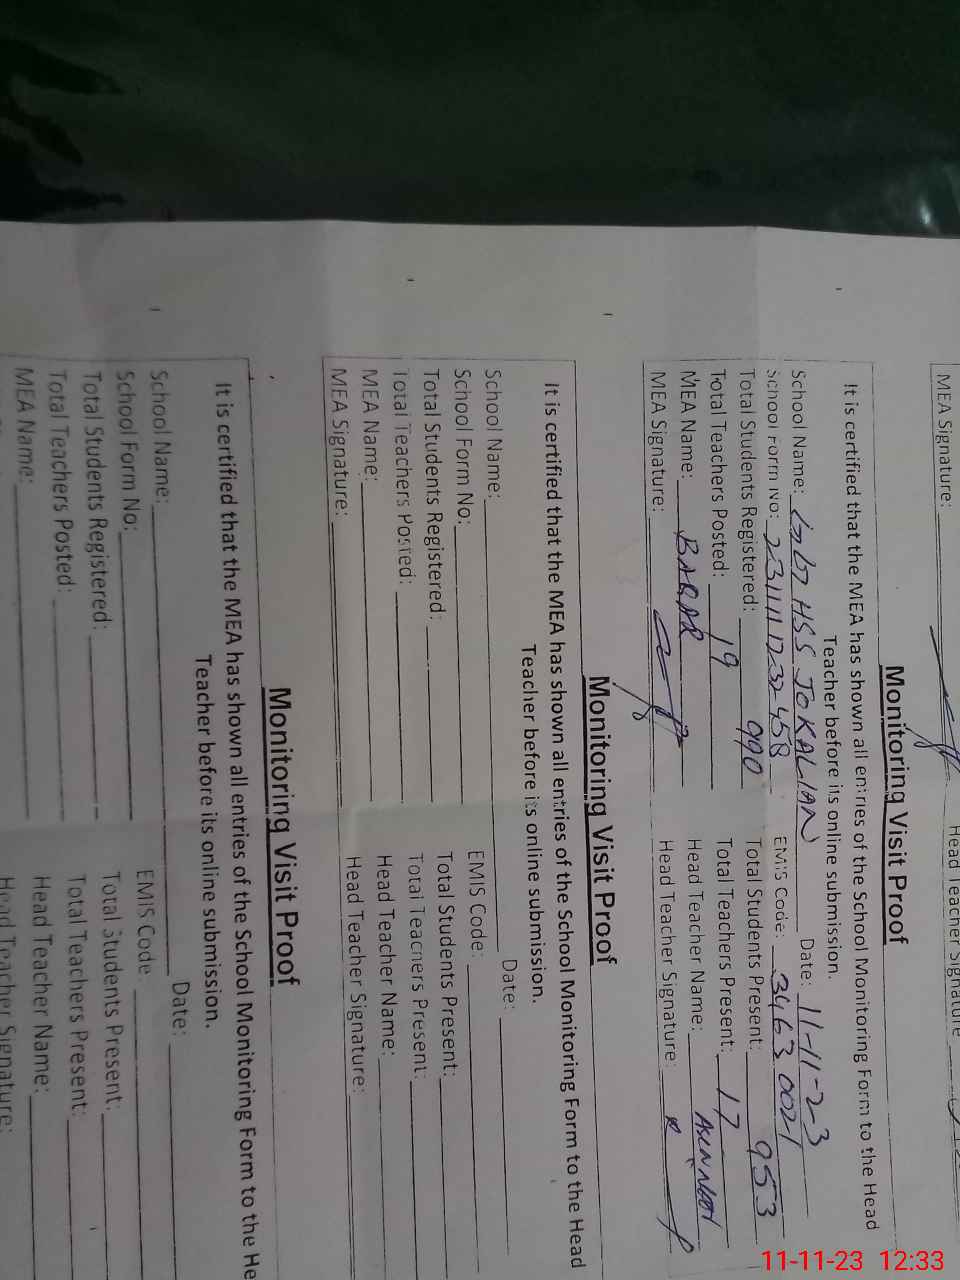 MEA Signature:
Head Teacher Signature
Monitoring Visit Proof
It is certified that the MEA has shown all entries of the School Monitoring Form to the Head
Teacher before its online submission.
School Name: HSS JOKALIAN Date: 11-11-23
School Form No: EMIS Code: 34630021
Total Students Registered: 990 Total Students Present: 953
Total Teachers Posted: 19 Total Teachers Present: 17
MEA Name: BABAR Head Teacher Name:
MEA Signature: Head Teacher Signature:
Monitoring Visit Proof
It is certified that the MEA has shown all entries of the School Monitoring Form to the Head
Teacher before its online submission.
School Name: Date:
School Form No: EMIS Code:
Total Students Registered: Total Students Present:
Total Teachers Posted: Total Teachers Present:
MEA Name: Head Teacher Name:
MEA Signature: Head Teacher Signature:
Monitoring Visit Proof
It is certified that the MEA has shown all entries of the School Monitoring Form to the He
Teacher before its online submission.
School Name: Date:
School Form No: EMIS Code
Total Students Registered: Total Students Present:
Total Teachers Posted: Total Teachers Present:
MEA Name: Head Teacher Name:
Head Teacher Signature:
11-11-23 12:33